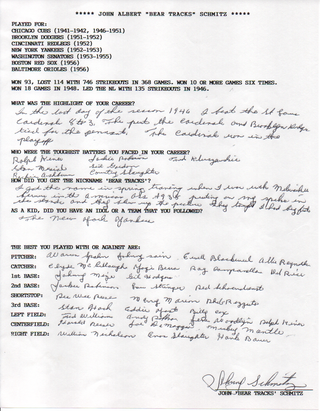 ***** JOHN ALBERT "BEAR TRACKS" SCHMITZ *****
PLAYED FOR:
CHICAGO CUBS (1941-1942, 1946-1951)
BROOKLYN DODGERS (1951-1952)
CINCINNATI REDLEGS (1952)
NEW YORK YANKEES (1952-1953)
WASHINGTON SENATORS (1953-1955)
BOSTON RED SOX (1956)
BALTIMORE ORIOLES (1956)
WON 93, LOST 114 WITH 746 STRIKEOUTS IN 366 GAMES. WON 10 OR MORE GAMES SIX TIMES.
WON 18 GAMES IN 1948. LED THE NL WITH 135 STRIKEOUTS IN 1946.
WHAT WAS THE HIGHLIGHT OF YOUR CAREER?
In the last day of the season 1946 I beat the St Louis
Cardinals 8 to 3. This put the Cardinals and Brooklyn Dodgers
tied for the pennant. The Cardinals won in the
playoff
WHO WERE THE TOUGHEST BATTERS YOU FACED IN YOUR CAREER?
Ralph Kiner Jackie Robinson Ted Kluszewski
Stan Musial Gil Hodges
Country Slaughter
HOW DID YOU GET THE NICKNAME "BEAR TRACKS"?
I got the name in spring training when I was with Milwaukee
AS A KID, DID YOU HAVE AN IDOL OR A TEAM THAT YOU FOLLOWED?
The New York Yankees
THE BEST YOU PLAYED WITH OR AGAINST ARE:
PITCHER: Warren Spahn Johnny Sain Ewell Blackwell Allie Reynolds
CATCHER: Clyde McCullough Yogi Berra Roy Campanella Del Rice
1st BASE: Johnny Mize Gil Hodges
2nd BASE: Jackie Robinson Red Schoendienst
SHORTSTOP: Pee Wee Reese Marty Marion Phil Rizzuto
3rd BASE: Stan Hack Eddie Yost Billy Cox
LEFT FIELD: Ted Williams Andy Pafko Ralph Kiner
CENTERFIELD: Joe DiMaggio Mickey Mantle
RIGHT FIELD: William Nicholson Enos Slaughter Hank Bauer
Johnny Schmitz
JOHN "BEAR TRACKS" SCHMITZ